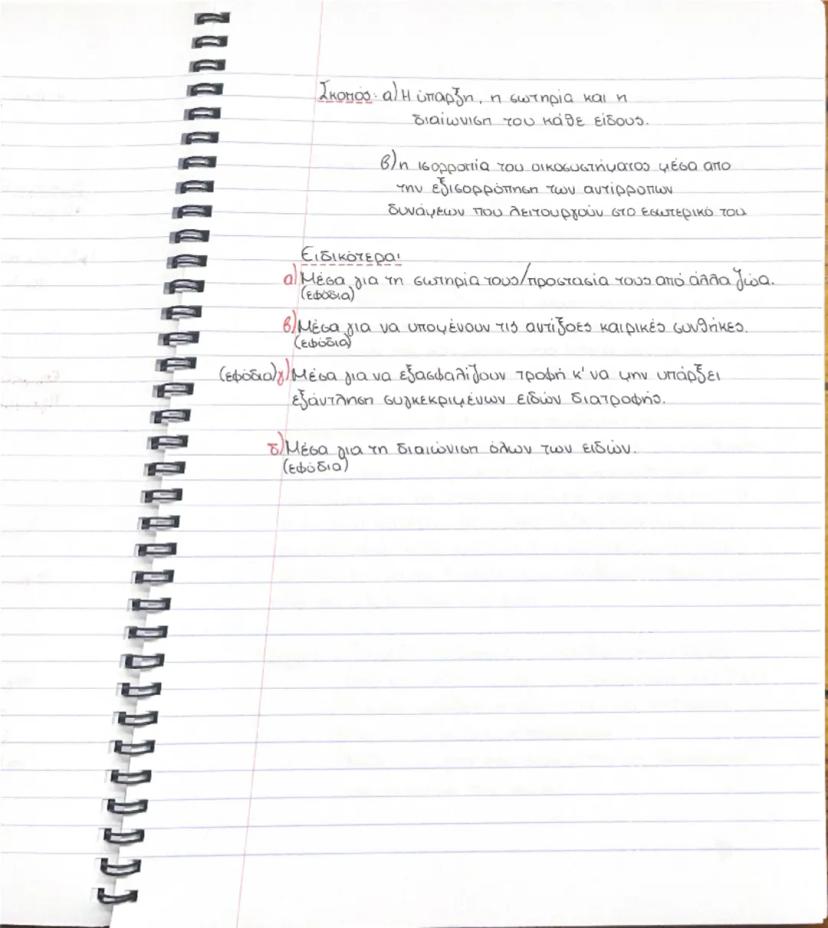 Σκοπός: α) Η ύπαρξη, η σωτηρία και η
διαίωνιση του κάθε είδους.
β) η ισορροπία του οικοσυστήματος μέσα απο
την εξισορρόπηση των αντίρροπων
δυνάμεων που λειτουργούν στο εσωτερικό του
Ειδικότερα:
α) Μέσα για τη σωτηρία τους/προστασία τους από άλλα ζώα.
(εφόδια)
β) Μέσα για να υπομένουν τις αντίξοες καιρικές συνθήκες.
(εφόδια)
(εφόδια) γ) Μέσα για να εξασφαλίζουν τροφή κ' να μην υπάρξει
εξάντληση συγκεκριμένων ειδών διατροφής.
δ) Μέσα για τη διαιώνιση όλων των ειδών.
(εφόδια)